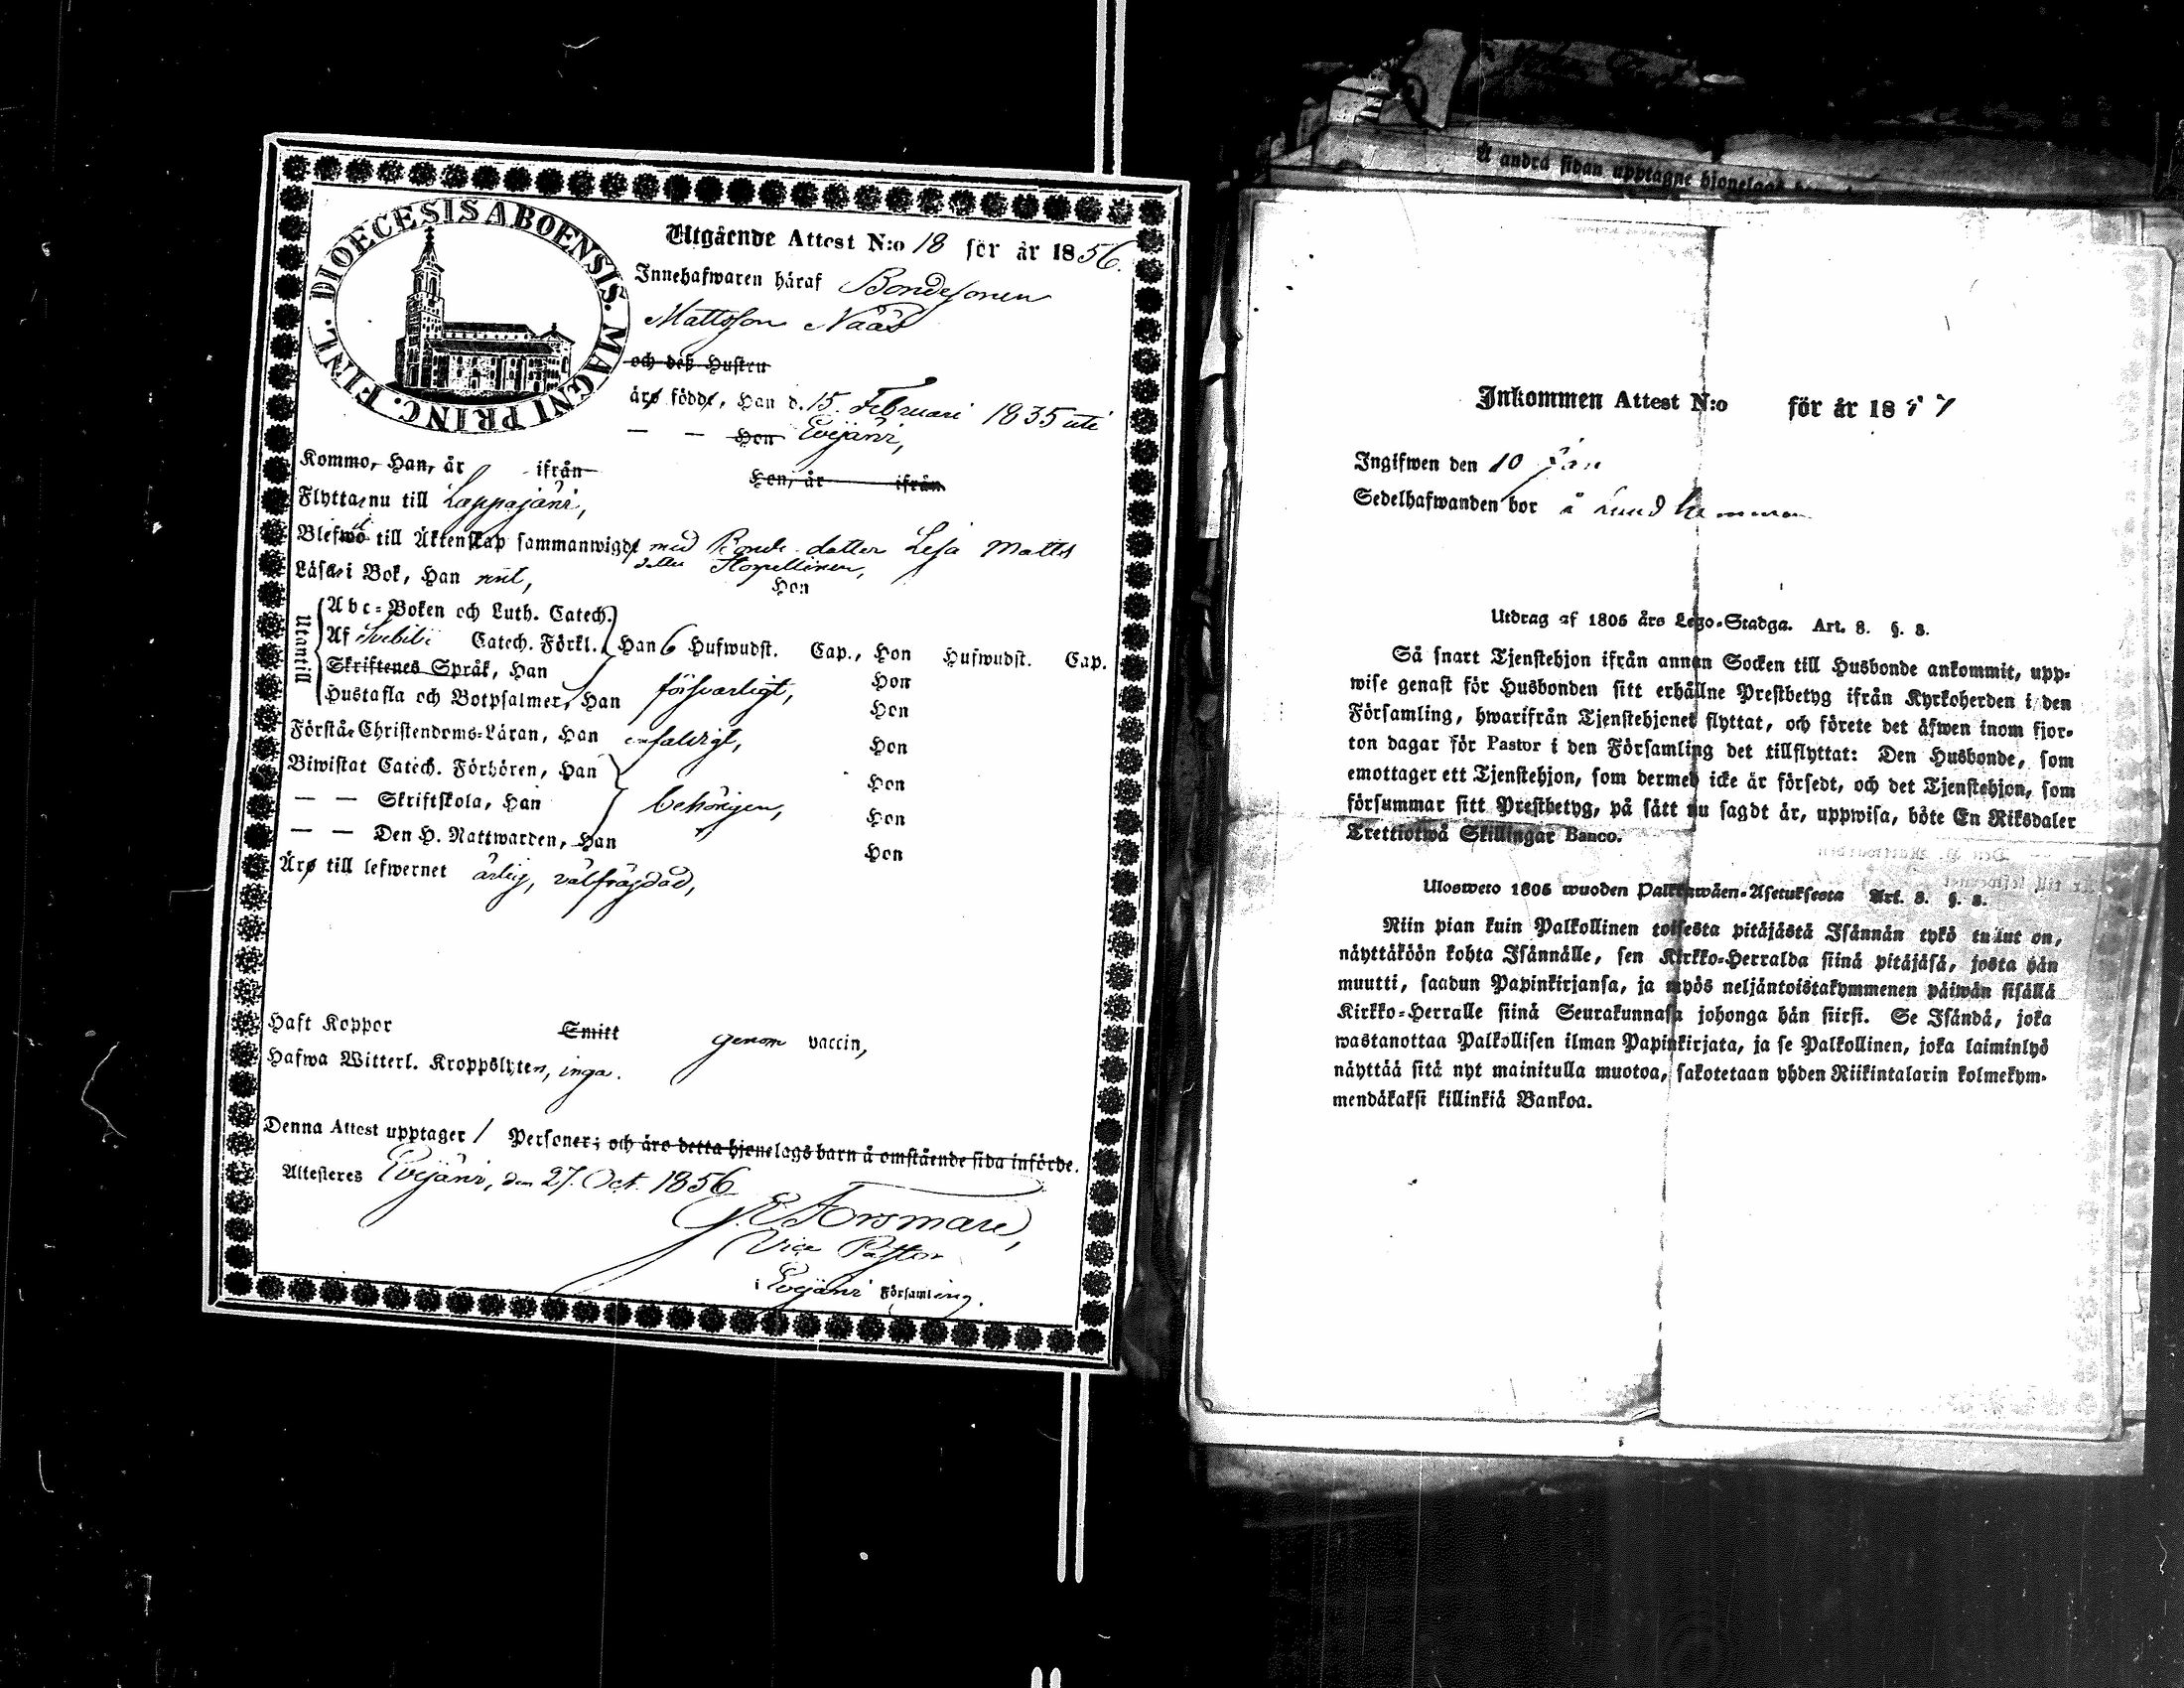 DIOECESIS ABOENSIS. MAGNI PRINC. FINL.
Utgående Attest N:o 18 för år 1856.
Innehafwaren häraf Bondesonen
Mattsson Nääs
och deß Hustru
äro födde, Han d. 15 Februari 1835 uti
— — Hon Evijärvi,
Kommo, Han, år ifrån Hon, år ifrån
Flytta nu till Lappajärvi,
Blefwo till Äktenskap sammanwigde med Bonde dotter Lisa Matts
dotter
Läsa i Bok, Han rent, Hon
Utantill
Abc-Boken och Luth. Catech.
Af Svebilii Catech. Förkl. Han 6 Hufwudst. Cap., Hon Hufwudst. Cap.
Skriftenes Språk, Han Hon
Hustafla och Botpsalmer, Han försvarligt, Hon
Förstå Christendoms-Läran, Han enfaldigt, Hon
Biwistat Catech. Förhören, Han Hon
— — Skriftskola, Han behörigen, Hon
— — Den H. Nattwarden, Han Hon
Äro till lefwernet ärlig, välfrägdad,
Haft Koppor Smitt genom vaccin,
Hafwa Witterl. Kroppslyten, inga.
Denna Attest upptager 1 Personer; och äro detta hjonelags barn å omstående sida införde.
Attesteres Evijärvi, den 27. Oct. 1856.
Forsman,
Vice Pastor
i Evijärvi Församling.
Å andra sidan upptagne hjonelags
Inkommen Attest N:o för år 1857
Ingifwen den 10 Jan
Sedelhafwanden bor å
Utdrag af 1805 års Lego-Stadga. Art. 8. §. 8.
Så snart Tjenstehjon ifrån annan Socken till Husbonde ankommit, upp-
wise genast för Husbonden sitt erhållne Prestbetyg ifrån Kyrkoherden i den
Församling, hwarifrån Tjenstehjonet flyttat, och förete det äfwen inom fjor-
ton dagar för Pastor i den Församling det tillflyttat: Den Husbonde, som
emottager ett Tjenstehjon, som dermed icke är försedt, och det Tjenstehjon, som
försummar sitt Prestbetyg, på sätt nu sagdt är, uppwisa, böte En Riksdaler
Trettiotwå Skillingar Banco.
Ulosweto 1805 wuoden Palkkawäen-Asetuksesta Art. 8. §. 8.
Niin pian kuin Palkollinen toisesta pitäjästä Isännän tykö tullut on,
näyttäköön kohta Isännälle, sen Kirkko-Herralda siinä pitäjäsä, josta hän
muutti, saadun Papinkirjansa, ja myös neljäntoistakymmenen päiwän sisällä
Kirkko-Herralle siinä Seurakunnasa johonga hän siirsi. Se Isändä, joka
wastanottaa Palkollisen ilman Papinkirjata, ja se Palkollinen, joka laiminlyö
näyttää sitä nyt mainitulla muotoa, sakotetaan yhden Riikintalarin kolmekym-
mendäkaksi killinkiä Bankoa.